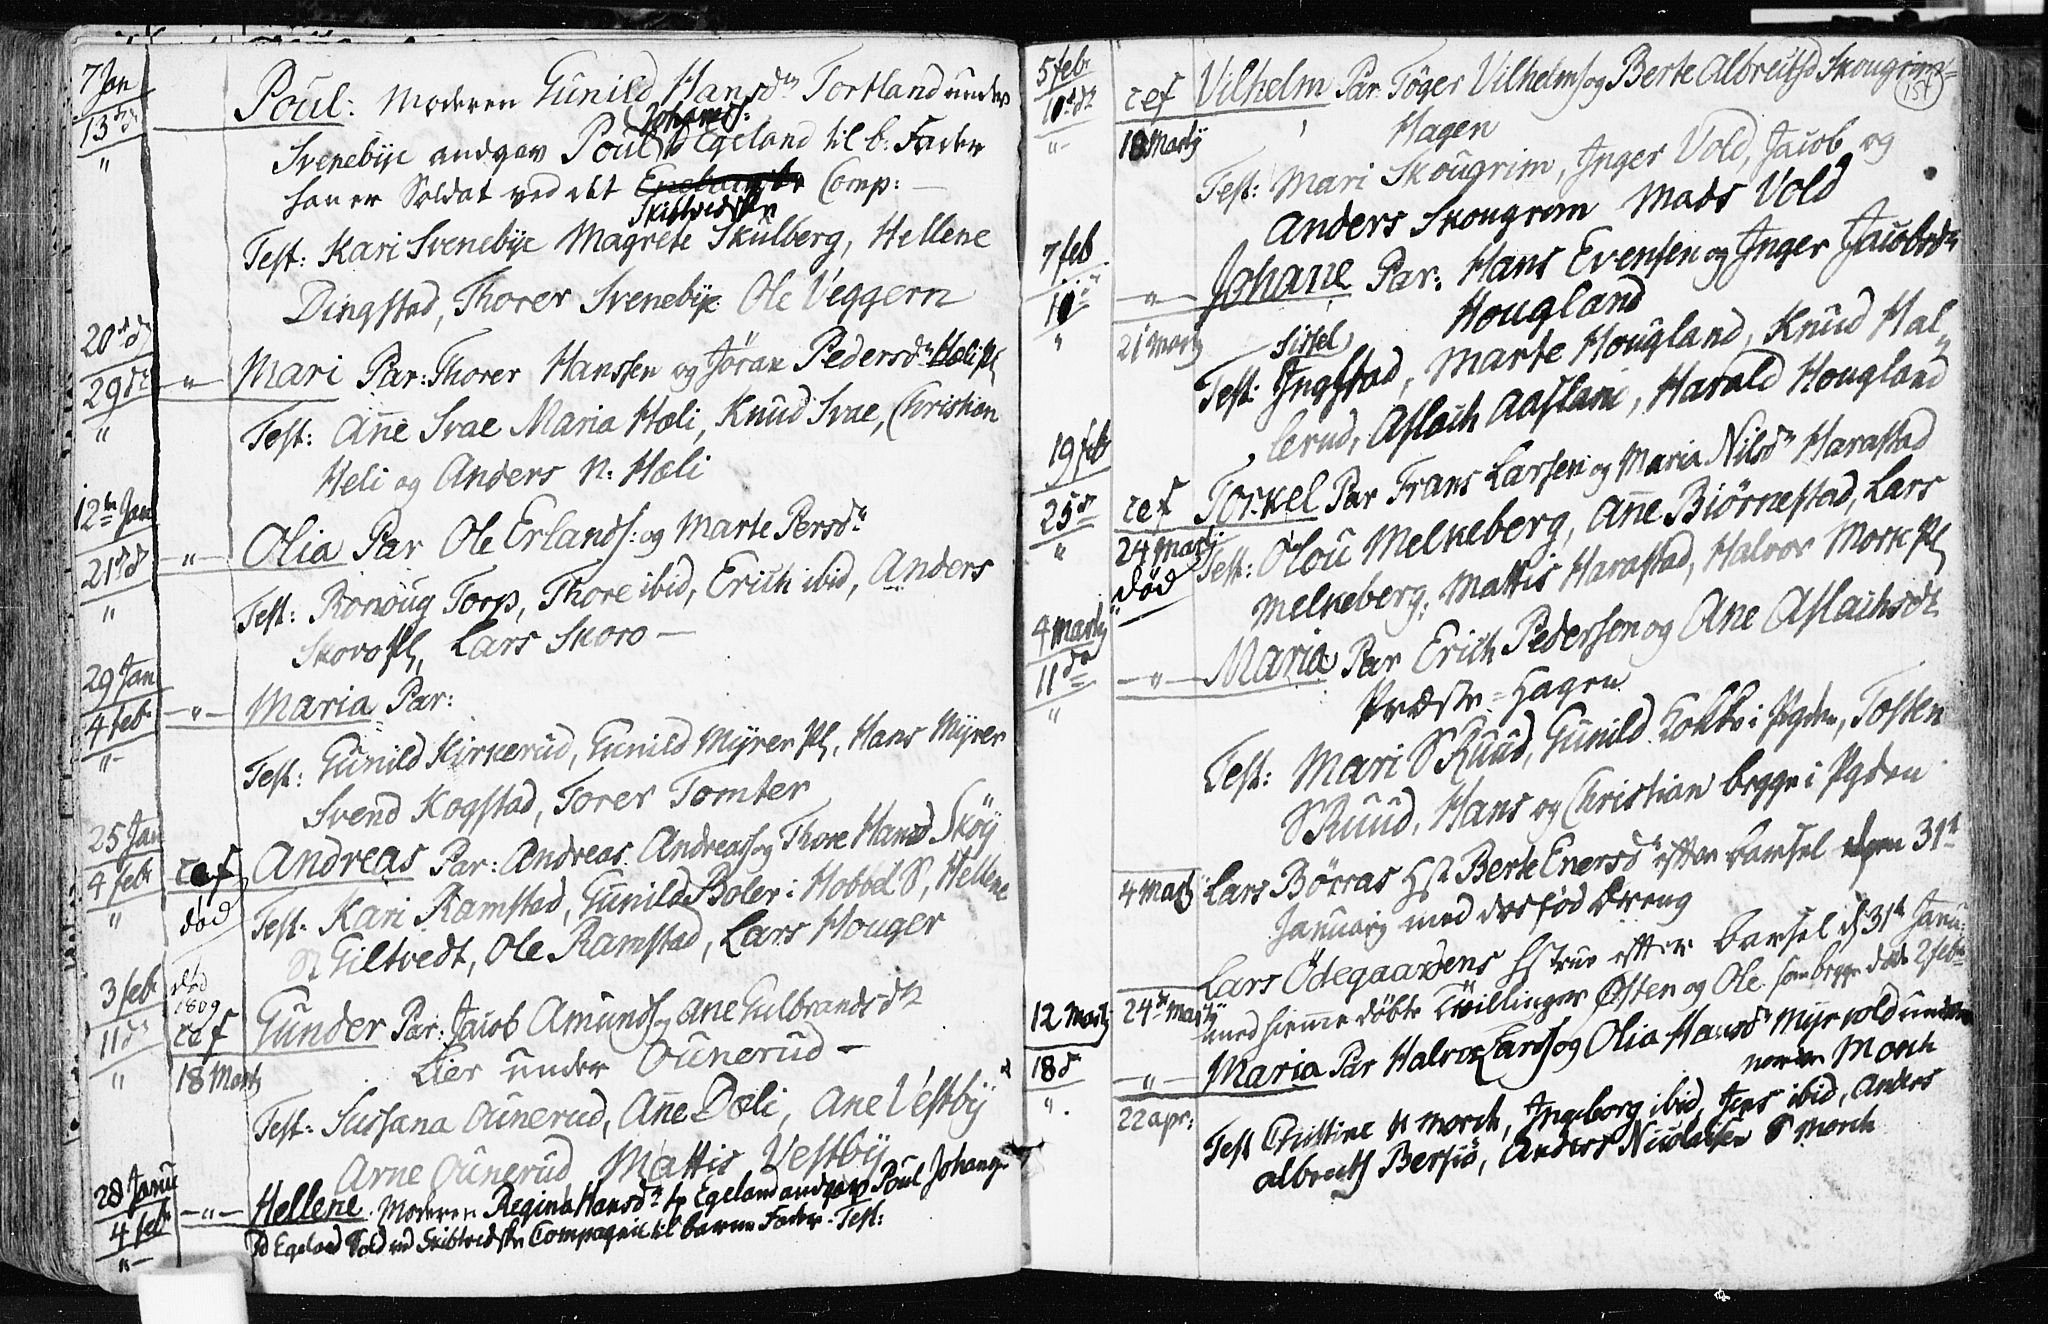 7 Jan
13 d
"
Poul: Moderen Gunild Hansdr Tortland under
Johans:
Svenebye andgav Poul Egeland til b: Fader
han er Soldat ved det Comp: —
Skibtvedske
Test: Kari Svenebye Magrete Skulberg, Hellene
Dingstad, Thorer Svenebye Ole Veggern
20 d
29 d
"
—"— Mari Par: Thorer Hanssen og Jöran Pedersdr Hæli Pl
Test: Ane Svae Maria Hæli, Knud Svae, Christian
Heli og Anders N: Hæli
12 Jan
21 d
"
—"— Olia Par Ole Erlands: og Marte Persdr
Test: Ronoug Torp, Thore ibid, Erich ibid, Anders
Skoro Pl, Lars Skoro —
29 Jan
4 febr
"
—"— Maria Par:
Test: Gunild Kirkerud, Gunild Myrer Pl, Hans Myrer
Svend Kogstad, Torer Tomter
25 Jan
4 febr
"
cef
død
Andreas Par: Andreas Andreas og Thore Hansd Sköy
Test: Kari Ramstad, Gunild Boler i Hobbel S, Hellene
Giltvedt, Ole Ramstad, Lars Houger
3 febr
11 d
"
død
1809
cef
18 Martj
Gunder Par: Jacob Amunds og Ane Gulbrandsdr
Lier under Ounerud —
Test: Sussana Ounerud, Ane Dæli, Ane Vestby
Arne Ounerud Mattis Vestby
28 Janu
4 febr
"
—"— Hellene. Moderen Regina Hansdr Egeland andgav Poul Johans
Egeland Sold ved Skibtvedske Compagnie til barne Fader. Test:
154
5 febr
11 d
"
cef
18 Martj
Vilhelm Par Töger Vilhelms og Berte Albretsd Skougrim-
Hagen
Test: Mari Skougrim, Inger Vold, Jacob og
Anders Skougrim Mads Vold
7 feb
11 d
"
—"—
21 Martj
Johane Par: Hans Evensen og Inger Jacobsdr
Hougland
Sissel
Test: Ingstad, Marte Hougland, Knud Hal-
lerud, Aslach Aasland, Harald Hougland
19 feb
25 d
"
cef
24 Martj
død
Torkel Par Frans Larsen og Maria Nilsdr Harastad
Test: Olou Melkeberg, Ane Biörnestad, Lars
Melkeberg, Mattis Harastad, Halvor Mork Pl
4 Martj
11 d
"
—"— Maria Par Erich Pedersen og Ane Aslachsdr
Præste-Hagen
Test: Mari S Ruud, Gunild Kokke i Pgden, Tosten
S Ruud, Hans og Christian begge i Pgden
4 Martj
Lars Börras Hst Berte Enersdr efter barsel den 31t
Januarj med dødfød Dreng
24 Martj
Lars Ødegaardens Hstrue efter barsel d 31t Janu:
med hiemmedøbte Tvillinger Østen og Ole som begge døde 2 febr
12 Martj
18 d
"
—"—
22 apr:
Maria Par Halvor Lars og Olia Hansdr Myrvold under
nordre Morch
Test Christine N Morch, Ingeborg ibid, Jens ibid, Anders
Albreths Bersiö, Anders Nicolaisen S Morch